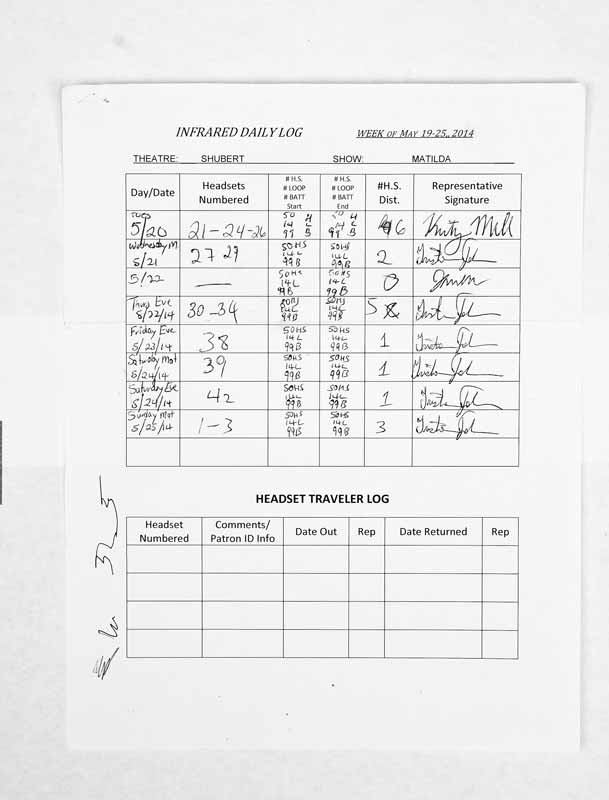 INFRARED DAILY LOG WEEK OF MAY 19-25,, 2014
THEATRE: SHUBERT SHOW: MATILDA
Day/Date Headsets Numbered # H.S. # LOOP # BATT Start # H.S. # LOOP # BATT End #H.S. Dist. Representative Signature
Tues 5/20 21-24-26 50 H 14 L 99 B 50 H 14 L 99 B 6
Wednesday M. 5/21 27 29 50HS 14L 99B 50HS 14L 99B 2
5/22 — 50HS 14L 99B 50HS 14L 99B 0
Thurs Eve 5/22/14 30-34 50HS 14L 99B 50HS 14L 99B 5
Friday Eve 5/23/14 38 50HS 14L 99B 50HS 14L 99B 1
Saturday Mat 5/24/14 39 50HS 14L 99B 50HS 14L 99B 1
Saturday Eve 5/24/14 42 50HS 14L 99B 50HS 14L 99B 1
Sunday Mat 5/25/14 1-3 50HS 14L 99B 50HS 14L 99B 3
HEADSET TRAVELER LOG
Headset Numbered Comments/ Patron ID Info Date Out Rep Date Returned Rep